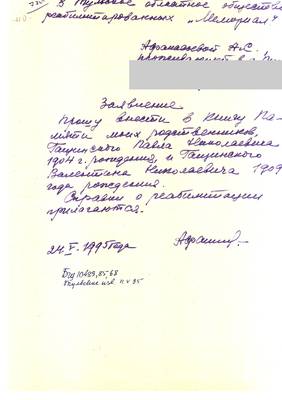 в Тульское областное общество
реабилитированных "Мемориал"
Афанасьевой А.С.
проживающей в г.
Заявление
Прошу внести в Книгу Па-
мяти моих родственников,
Гащинского Павла Николаевича
1904 г. рождения, и Гащинского
Валентина Николаевича 1909
года рождения.
Справки о реабилитации
прилагаются.
24.V.1995 года